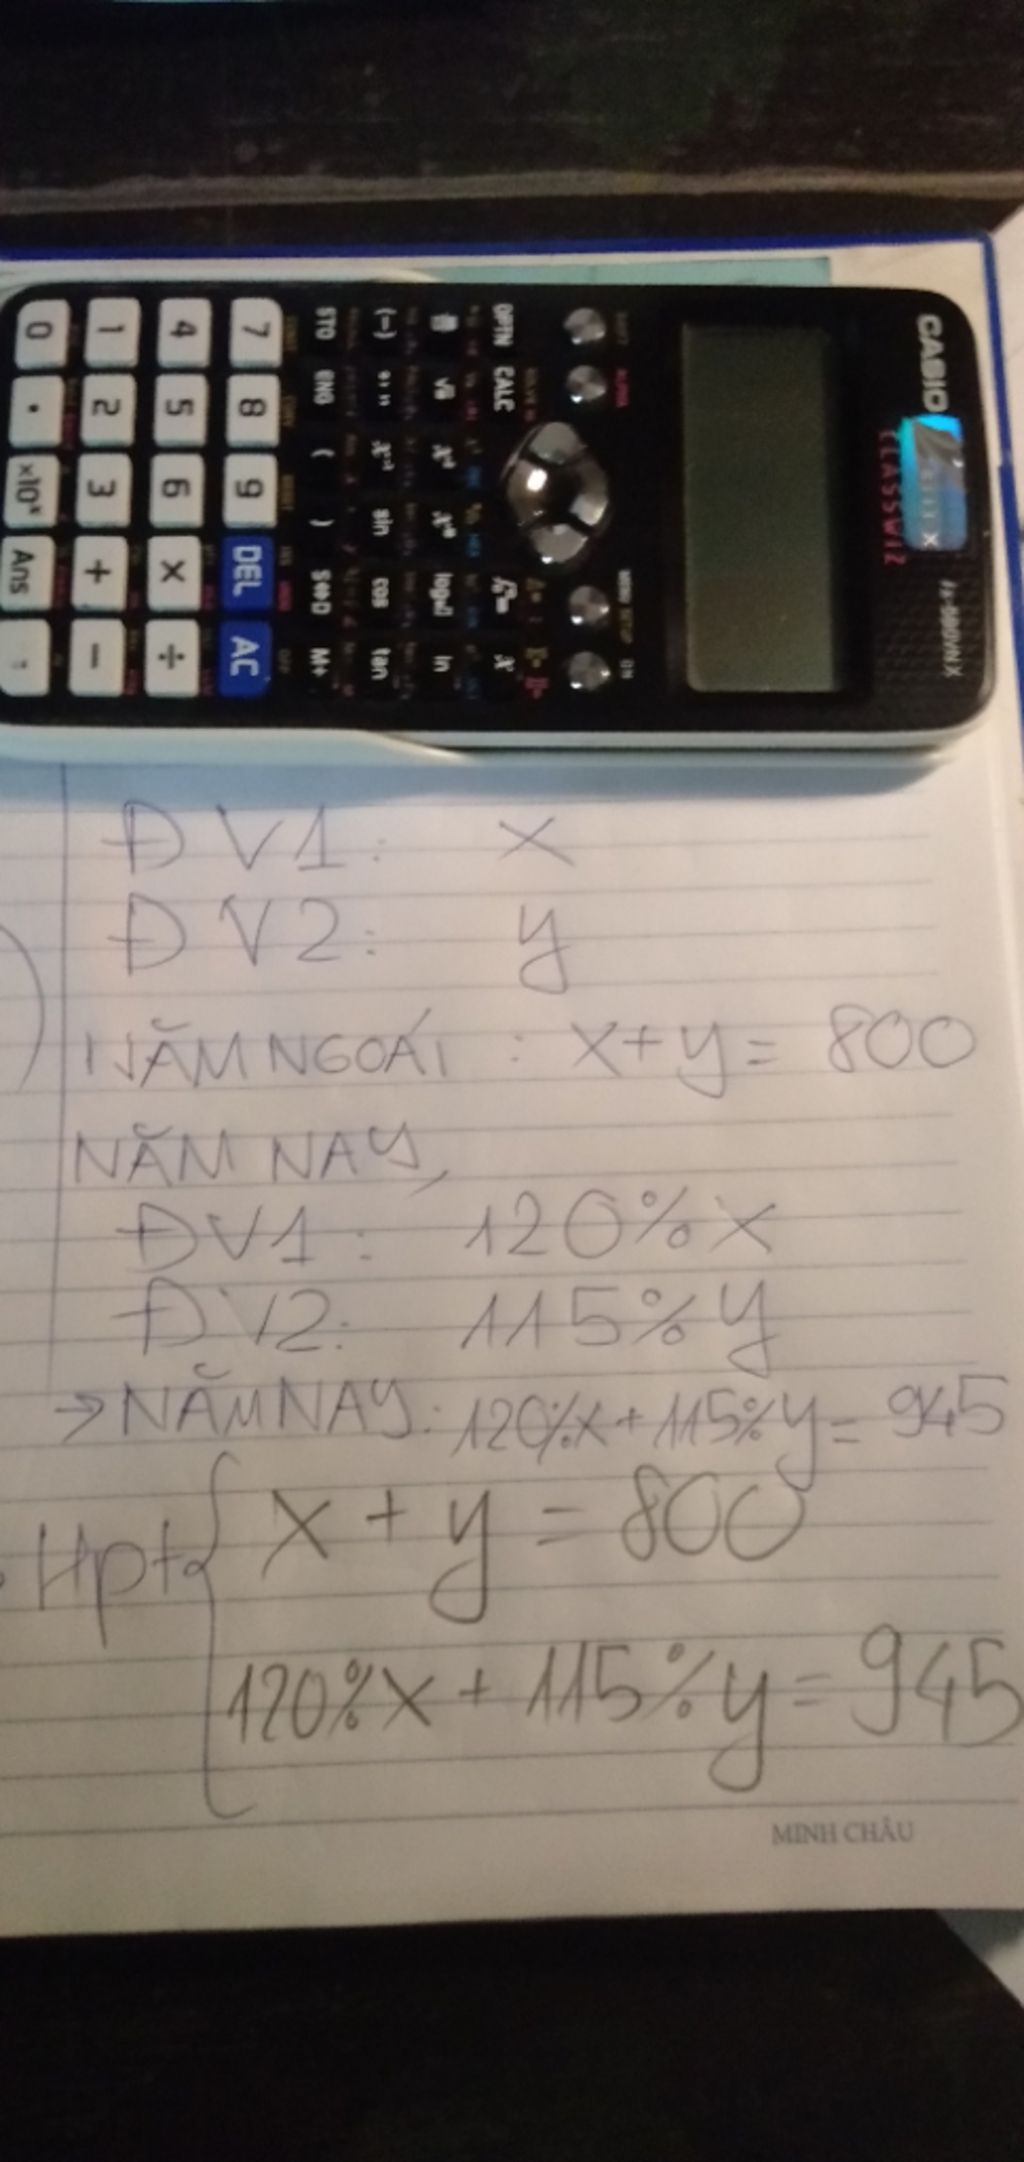 CASIO
CLASSWIZ
fx-580VN X
OPTN CALC
STO ENG ( ) S⇔D M+
sin cos tan
ln
7 8 9 DEL AC
4 5 6 × ÷
1 2 3 + −
0 . ×10ˣ Ans =
ĐV1: x
ĐV2: y
NĂM NGOÁI : x+y = 800
NĂM NAY,
ĐV1: 120% x
ĐV2: 115% y
→ NĂM NAY: 120%x + 115%y = 945
Hpt { x + y = 800
120%x + 115%y = 945
MINH CHÂU